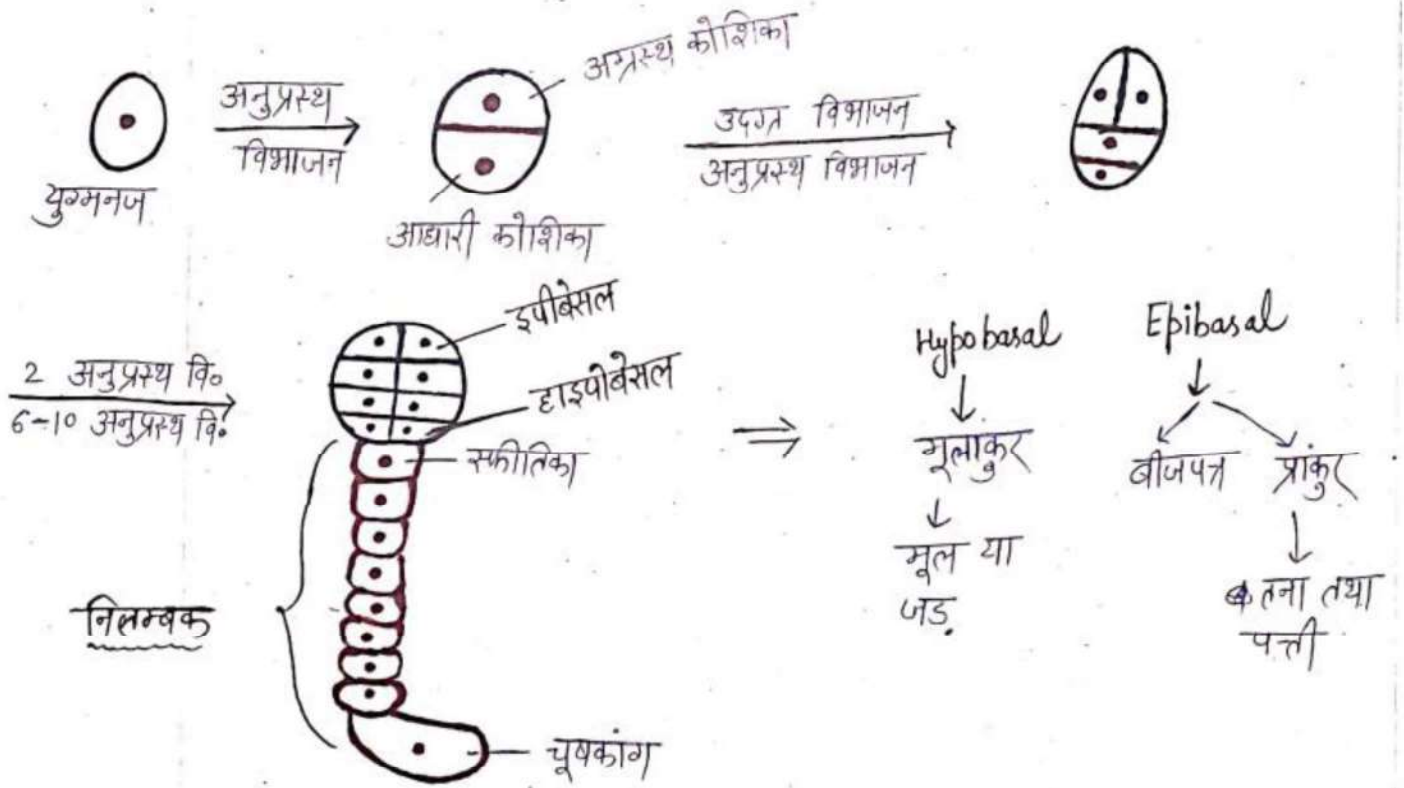 अग्रस्थ कोशिका
अनुप्रस्थ
विभाजन
युग्मनज
आधारी कोशिका
उदग्र विभाजन
अनुप्रस्थ विभाजन
2 अनुप्रस्थ वि०
6-10 अनुप्रस्थ वि०
इपीबेसल
हाइपोबेसल
स्फीतिका
निलम्बक
चूषकांग
⇒
Hypobasal
मूलांकुर
मूल या
जड़
Epibasal
बीजपत्र प्रांकुर
तना तथा
पत्ती